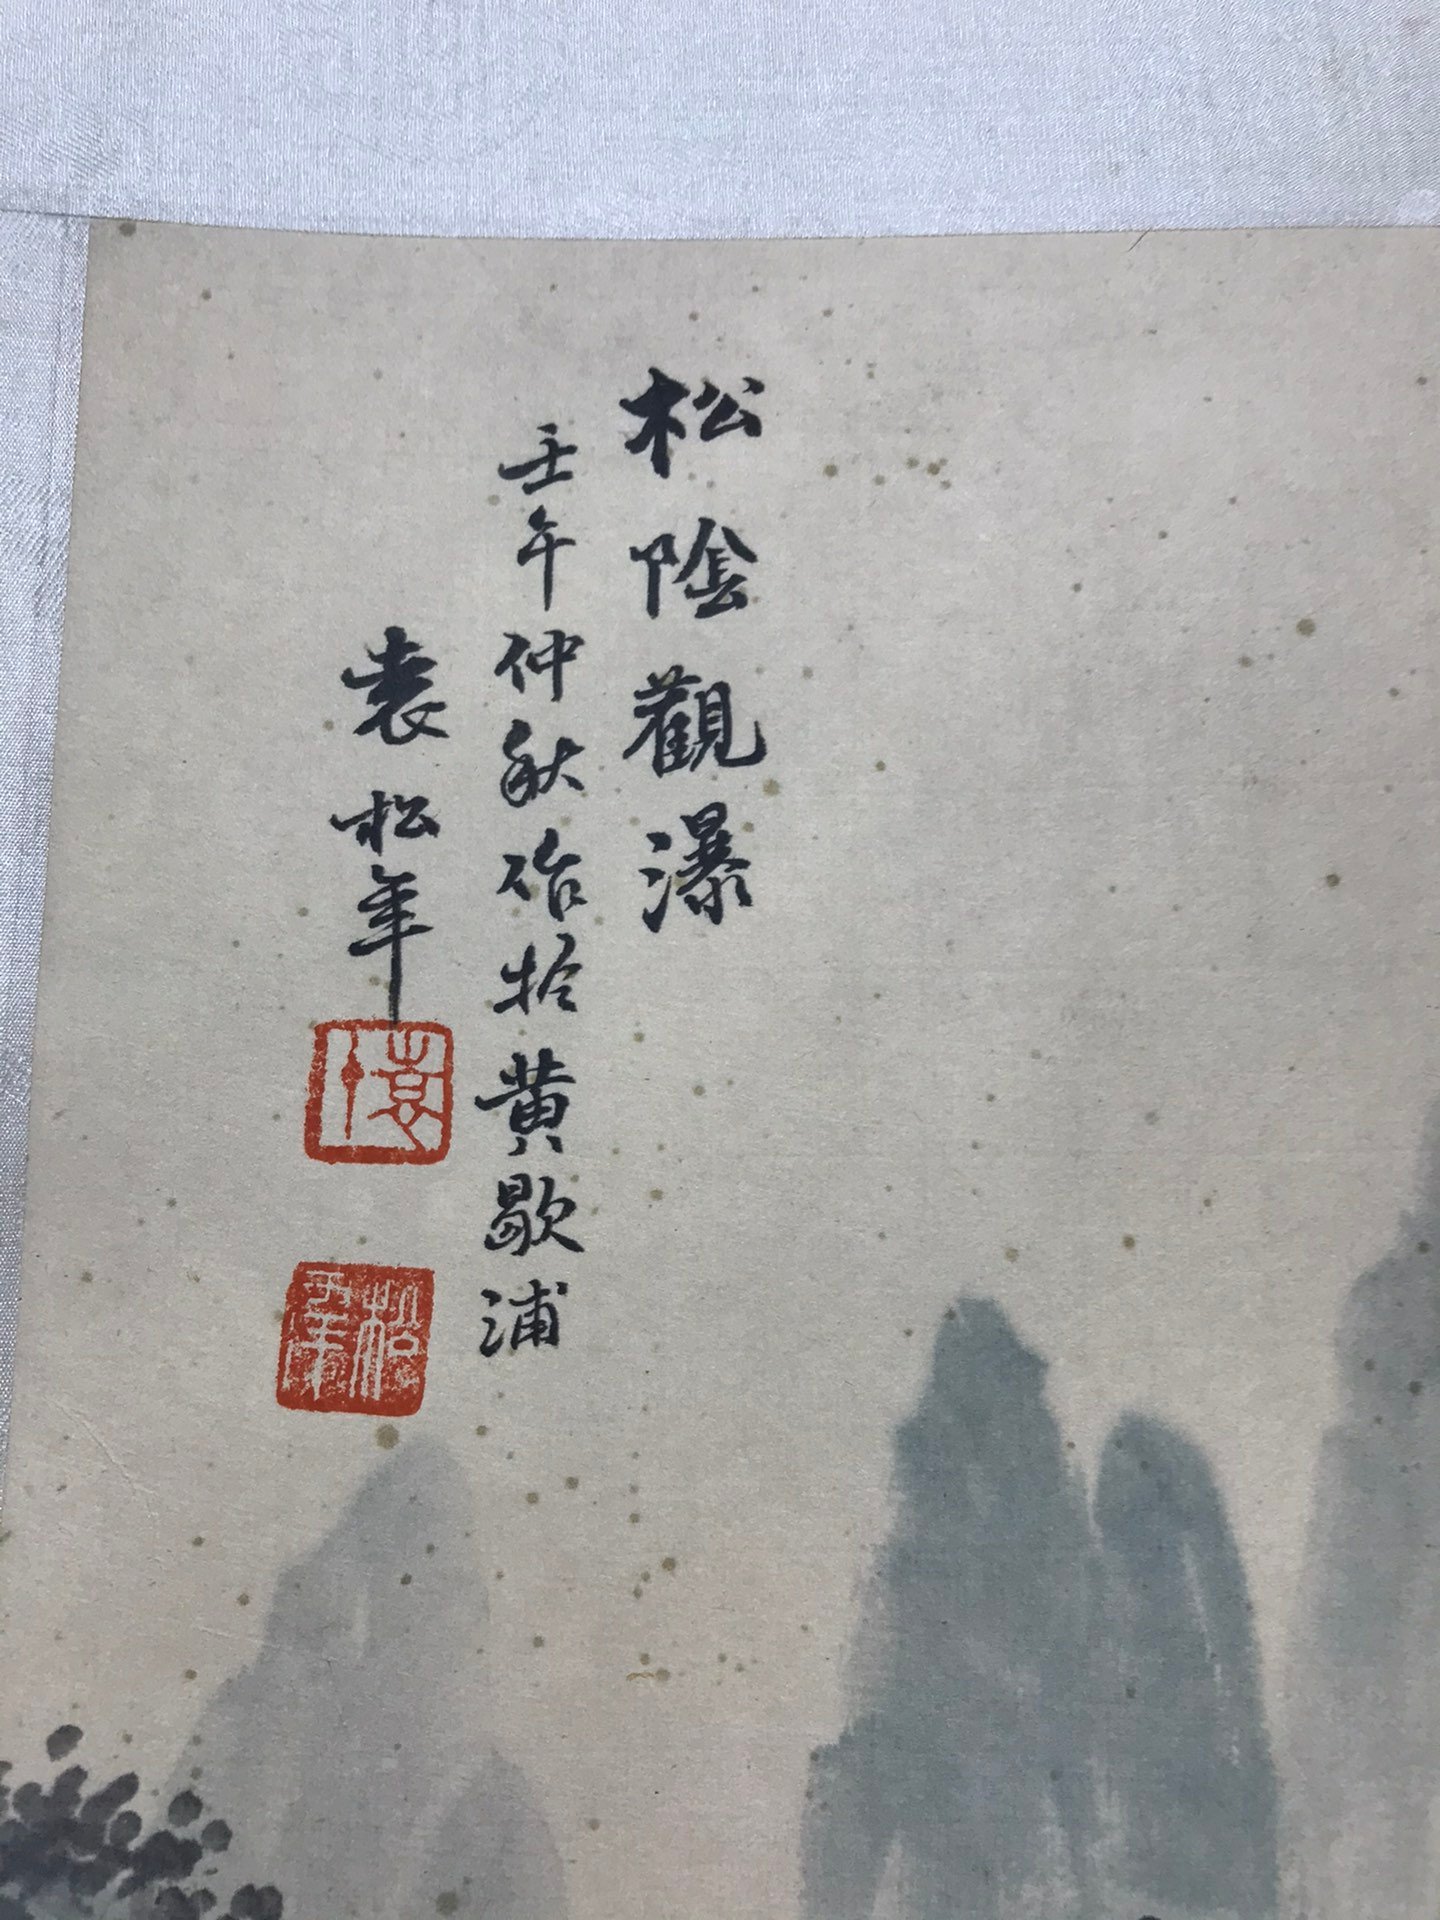 松陰觀瀑
壬午仲秋冶於黃歇浦
袁松年
袁
松年